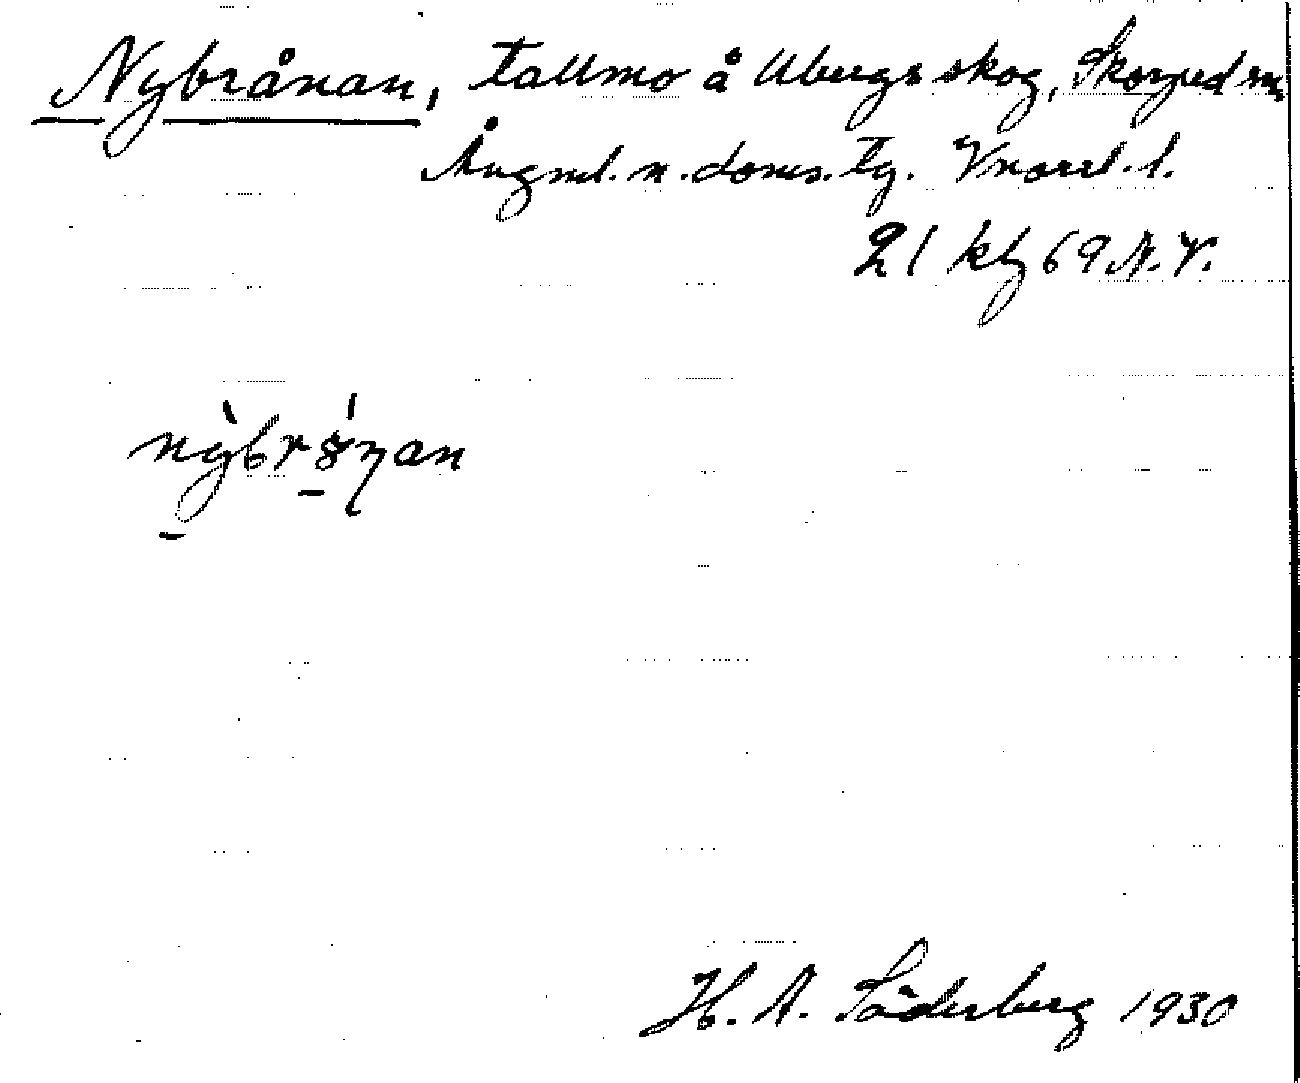 Nybrånan, tallmo å Ubergs skog, Skorped sn,
Ångml. n. doms. tg. Vnorrl. l.
21 kb 69 N.V.
H. A. Söderberg 1930